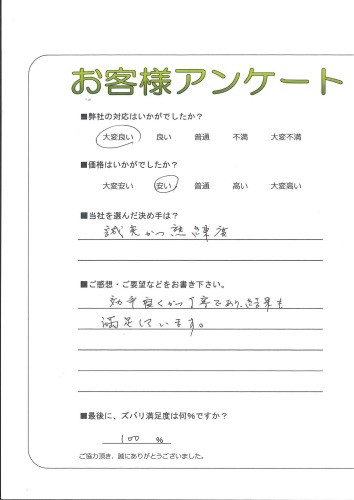 お客様アンケート
■弊社の対応はいかがでしたか？
大変良い 良い 普通 不満 大変不満
■価格はいかがでしたか？
大変安い 安い 普通 高い 大変高い
■当社を選んだ決め手は？
誠実かつ熟練度
■ご感想・ご要望などをお書き下さい。
効率良くかつ丁寧であり、結果も
満足しています。
■最後に、ズバリ満足度は何％ですか？
100 %
ご協力頂き、誠にありがとうございました。